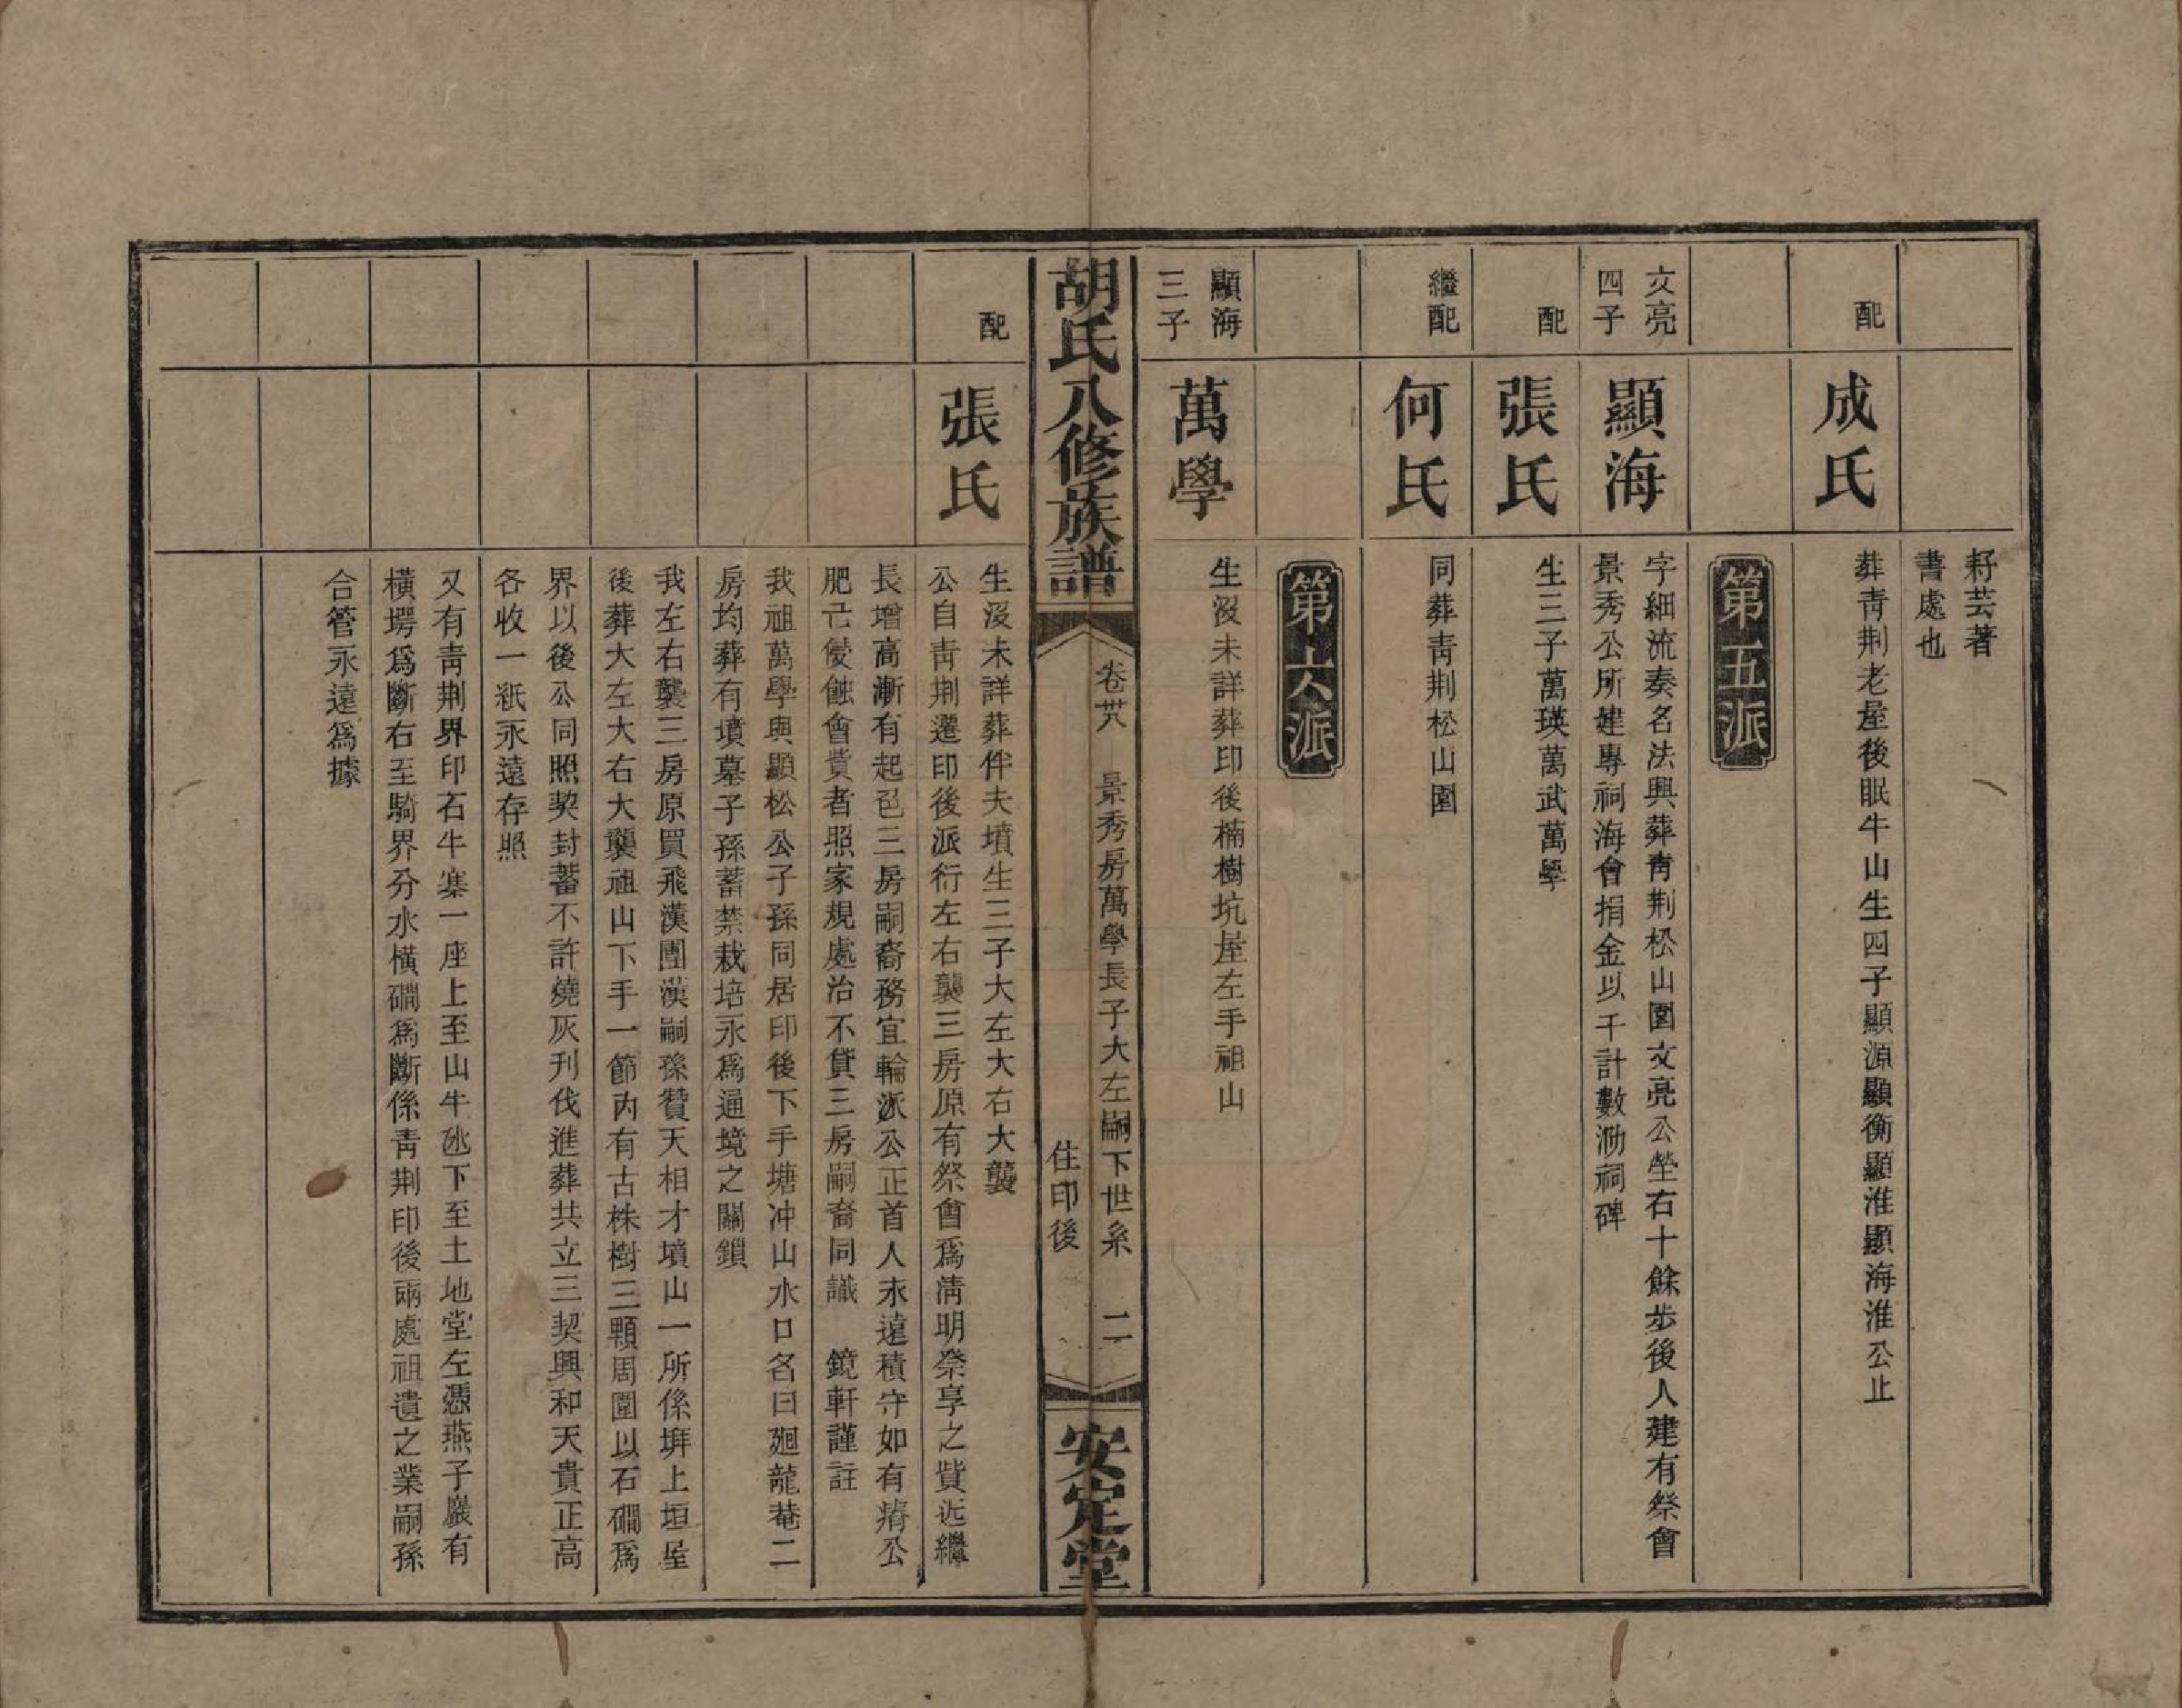 耔芸著
書處也
配
成氏
葬靑荆老屋後眠牛山生四子顯源顯衡顯淮顯海淮公止
第五派
文亮
四子
顯海
字細流奏名法興葬靑荆松山圍文亮公塋右十餘步後人建有祭會
景秀公所建專祠海會捐金以千計數泐祠碑
配
張氏
生三子萬瑛萬武萬學
繼配
何氏
同葬靑荆松山圍
第六派
顯海
三子
萬學
生沒未詳葬印後楠樹坑屋左手祖山
胡氏八修族譜
卷卅八
景秀房萬學長子大左嗣下世系
二
住印後
安定堂
配
張氏
生沒未詳葬伴夫墳生三子大左大右大襲
公自靑荆遷印後派衍左右襲三房原有祭會爲淸明祭享之貲近繼
長增高漸有起色三房嗣裔務宜輪派公正首人永遠積守如有瘠公
肥己侵蝕會貲者照家規處治不貸三房嗣裔同識　鏡軒謹註
我祖萬學與顯松公子孫同居印後下手塘冲山水口名曰廻龍菴二
房均葬有墳墓子孫蓄禁栽培永爲逼境之關鎖
我左右襲三房原買飛漢團漢嗣孫贊天相才墳山一所係塀上垣星
後葬大左大右大襲祖山下手一節內有古株樹三顆周圍以石磵爲
界以後公同照契封蓄不許燒灰刊伐進葬共立三契興和天貴正高
各收一紙永遠存照
又有靑荆界印石牛寨一座上至山牛氹下至土地堂左憑燕子巖有
橫塄爲斷右至騎界分水橫磵爲斷係靑荆印後兩處祖遺之業嗣孫
合管永遠爲據